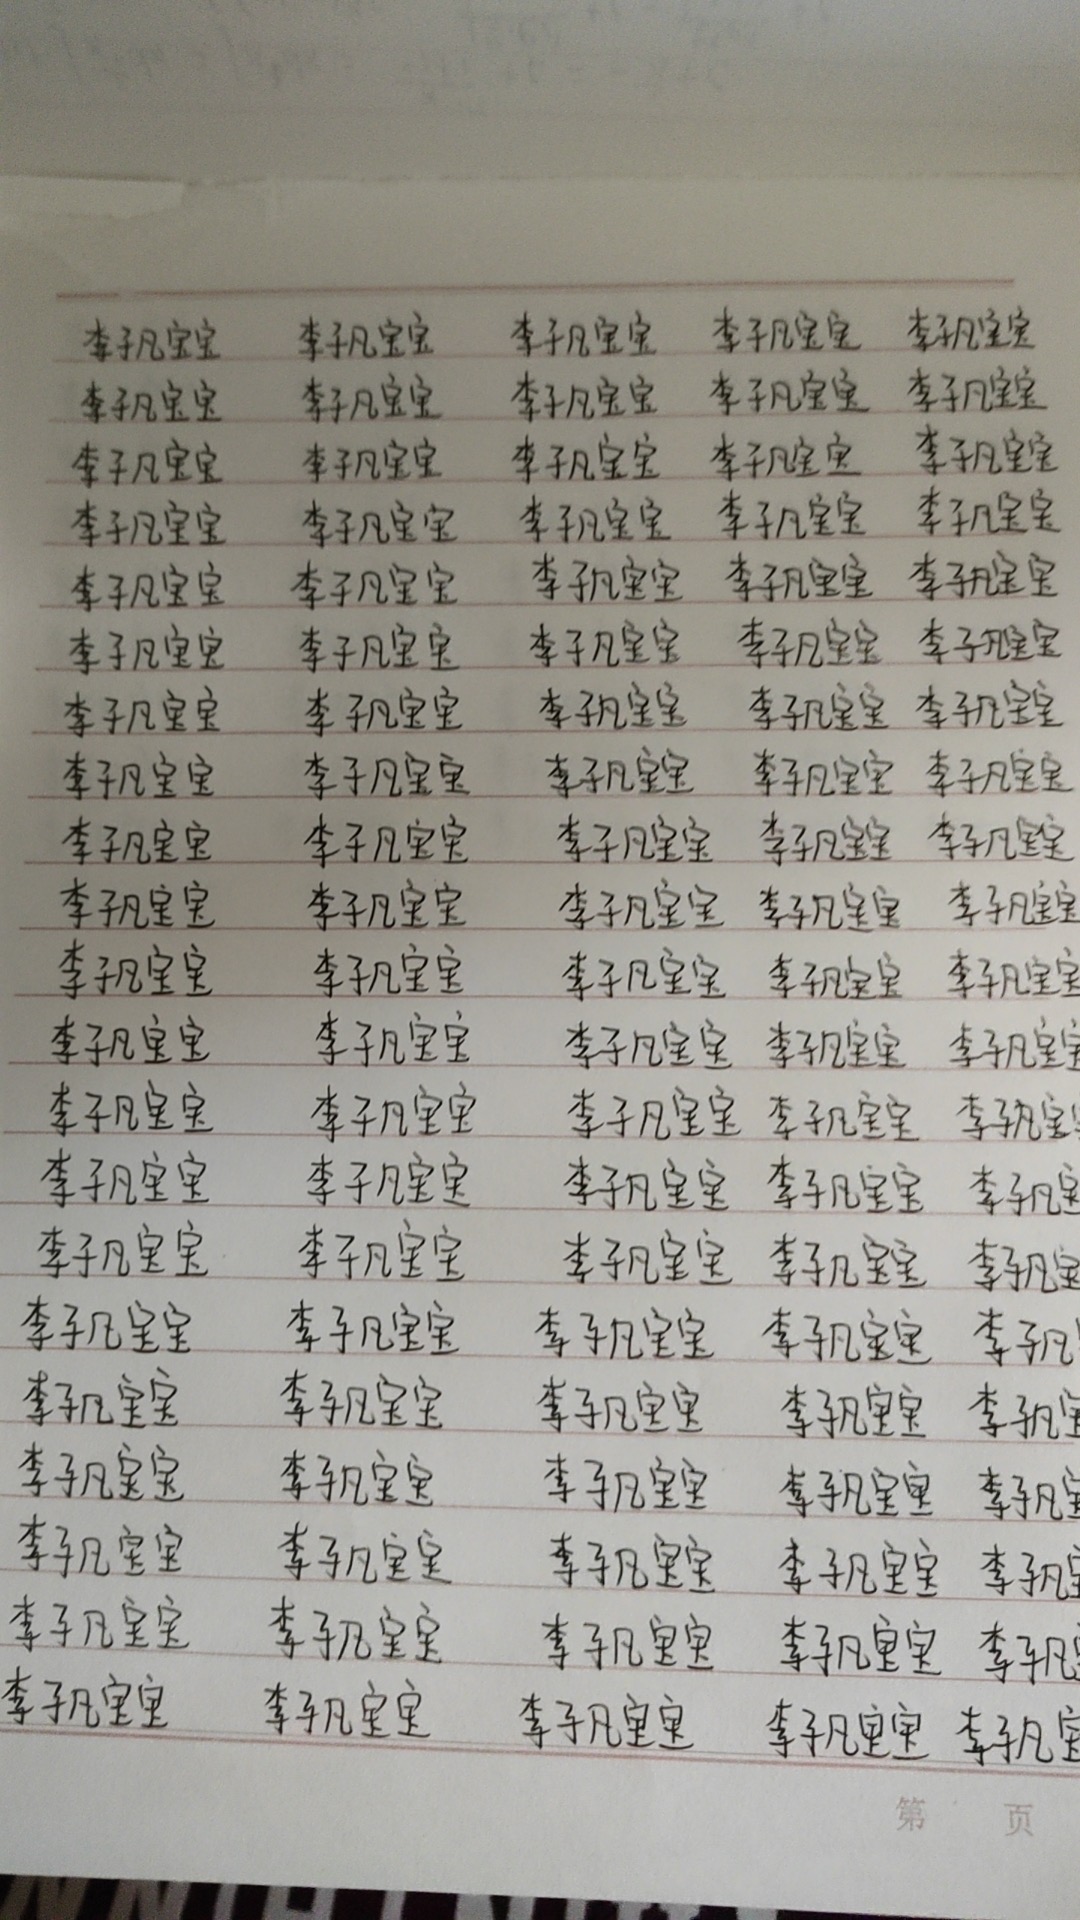 李子凡宝宝 李子凡宝宝 李子凡宝宝 李子凡宝宝 李子凡宝宝
李子凡宝宝 李子凡宝宝 李子凡宝宝 李子凡宝宝 李子凡宝宝
李子凡宝宝 李子凡宝宝 李子凡宝宝 李子凡宝宝 李子凡宝宝
李子凡宝宝 李子凡宝宝 李子凡宝宝 李子凡宝宝 李子凡宝宝
李子凡宝宝 李子凡宝宝 李子凡宝宝 李子凡宝宝 李子凡宝宝
李子凡宝宝 李子凡宝宝 李子凡宝宝 李子凡宝宝 李子凡宝宝
李子凡宝宝 李子凡宝宝 李子凡宝宝 李子凡宝宝 李子凡宝宝
李子凡宝宝 李子凡宝宝 李子凡宝宝 李子凡宝宝 李子凡宝宝
李子凡宝宝 李子凡宝宝 李子凡宝宝 李子凡宝宝 李子凡宝宝
李子凡宝宝 李子凡宝宝 李子凡宝宝 李子凡宝宝 李子凡宝宝
李子凡宝宝 李子凡宝宝 李子凡宝宝 李子凡宝宝 李子凡宝宝
李子凡宝宝 李子凡宝宝 李子凡宝宝 李子凡宝宝 李子凡宝宝
李子凡宝宝 李子凡宝宝 李子凡宝宝 李子凡宝宝 李子凡宝
李子凡宝宝 李子凡宝宝 李子凡宝宝 李子凡宝宝 李子凡宝
李子凡宝宝 李子凡宝宝 李子凡宝宝 李子凡宝宝 李子凡宝
李子凡宝宝 李子凡宝宝 李子凡宝宝 李子凡宝宝 李子凡
李子凡宝宝 李子凡宝宝 李子凡宝宝 李子凡宝宝 李子凡宝
李子凡宝宝 李子凡宝宝 李子凡宝宝 李子凡宝宝 李子凡宝
李子凡宝宝 李子凡宝宝 李子凡宝宝 李子凡宝宝 李子凡宝
李子凡宝宝 李子凡宝宝 李子凡宝宝 李子凡宝宝 李子凡
李子凡宝宝 李子凡宝宝 李子凡宝宝 李子凡宝宝 李子凡宝
第 页